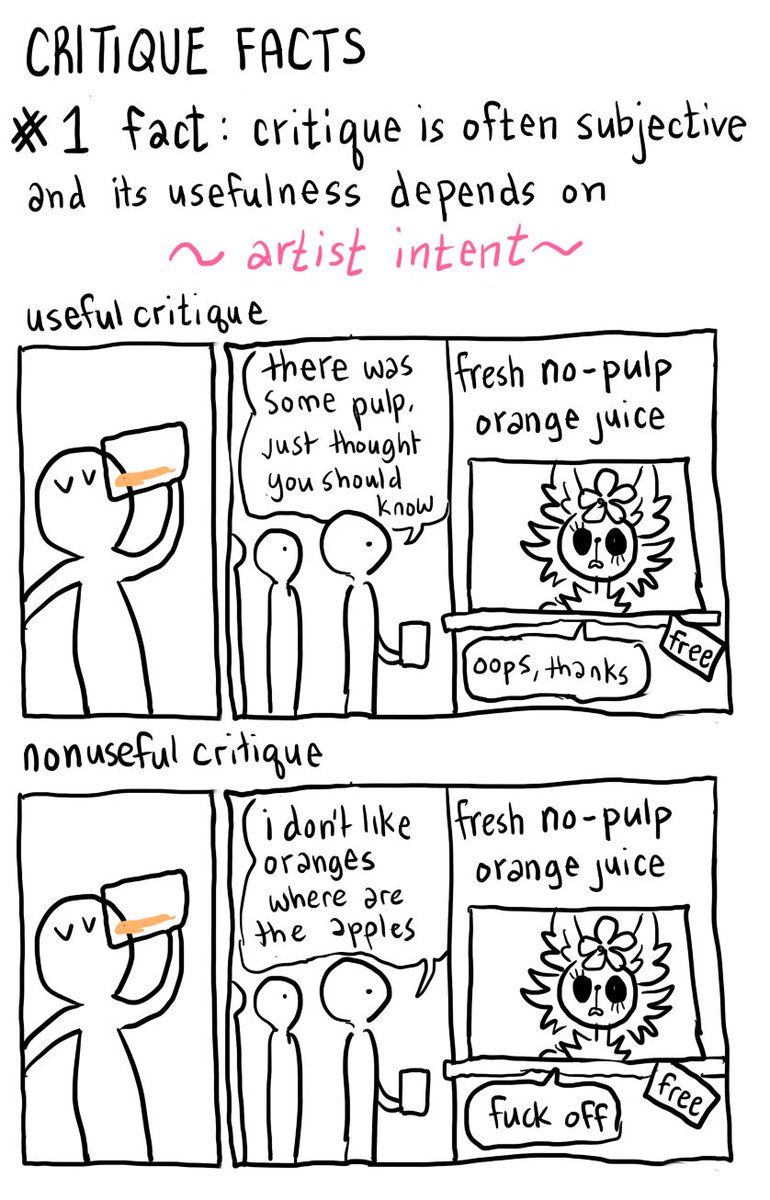 CRITIQUE FACTS
#1 fact: critique is often subjective
and its usefulness depends on
~ artist intent ~
useful critique
there was
some pulp,
just thought
you should
know
fresh no-pulp
orange juice
free
oops, thanks
nonuseful critique
i don't like
oranges
where are
the apples
fresh no-pulp
orange juice
free
fuck off